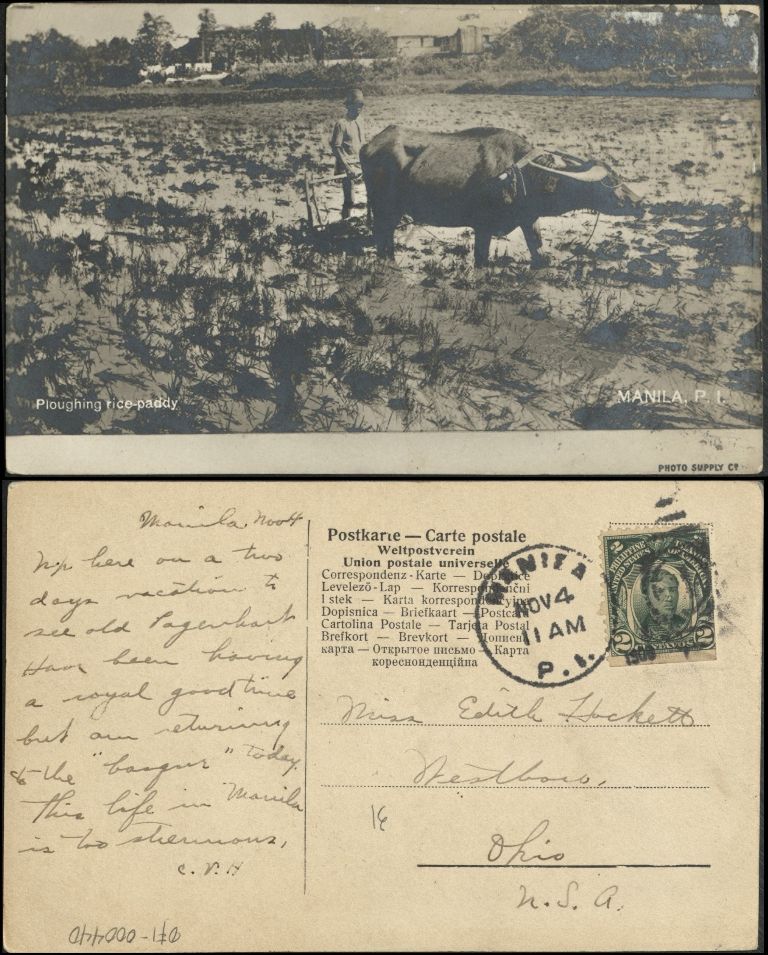 Ploughing rice-paddy
MANILA, P. I.
PHOTO SUPPLY Cº
Manila Nov 4
Up here on a two
days vacation to
see old Lagerhart
Have been having
a royal good time
but am returning
to the " " today.
This life in Manila
is too strenuous,
C. V. H
Postkarte — Carte postale
Weltpostverein
Union postale universelle
Correspondenz-Karte — Dopisnice
Levelező-Lap — Korrespondenční
lístek — Karta korrespondencyjna
Dopisnica — Briefkaart — Postcard
Cartolina Postale — Tarjeta Postal
Brefkort — Brevkort — Дописна
карта — Открытое письмо — Карта
кореснонденційна
MANILA
NOV 4
11 AM
P. I.
2 2
PHILIPPINE ISLANDS
UNITED STATES OF AMERICA
2 CENTAVOS 2
Miss Edith Hockett
Westboro,
Ohio
U. S. A.
071-000440